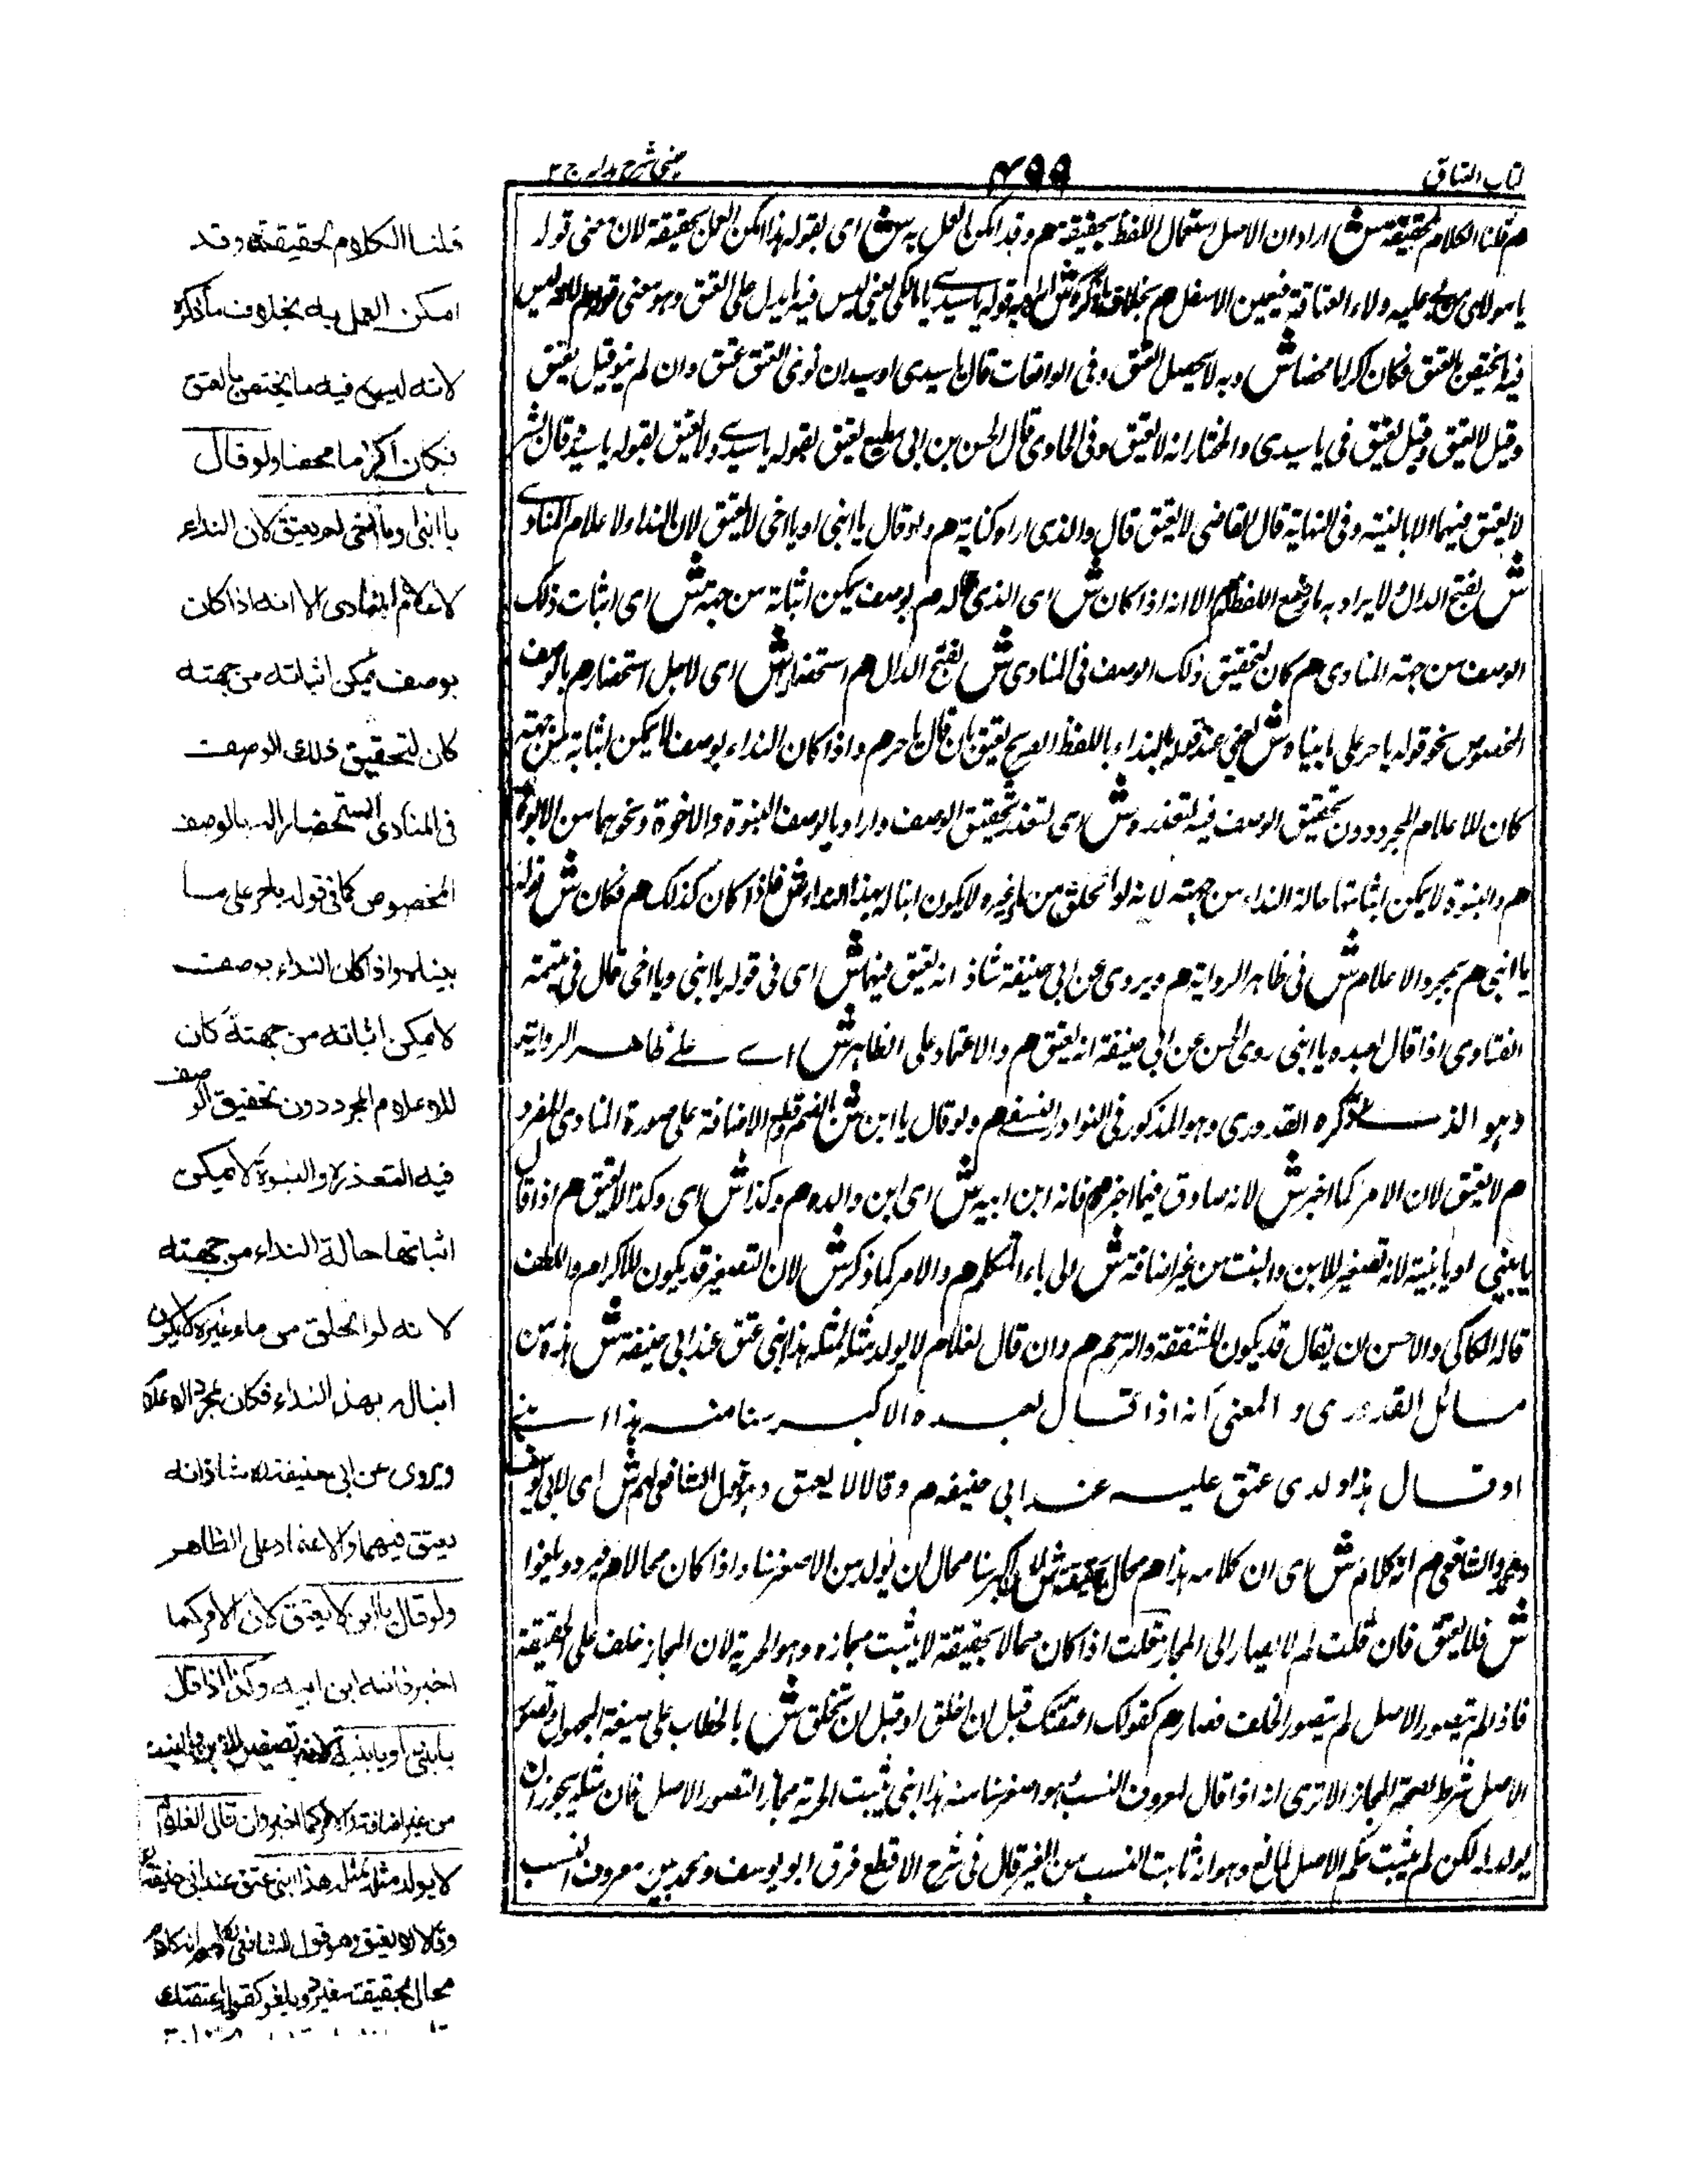 كتاب العتاق
عينى شرح هدايه ج ٢
م قلنا الكلام لحقيقته ش اراد ان الاصل استعمال اللفظ بحقيقته م وقد امكن العمل به ش اى بقوله هذا امكن العمل بحقيقة لان معنى قوله
يا مولاى من لى عليه ولاء العتاقة فيتعين الاسفل م بخلاف ما ذكره ش قوله يا سيدى يا مالكى يعنى ليس فيه ما يدل على العتق وهو معنى قوله م لانه ليس
فيه ما يختص بالعتق فكان اكراما محضا ش وبه لا يحصل العتق وفى الواقعات قال يا سيدى او سيد ان نوى العتق عتق وان لم ينو قيل يعتق
وقيل لا يعتق وقيل يعتق فى يا سيدى والمختار انه لا يعتق وفى الحاوى قال الحسن بن ابى مطيع يعتق بقوله يا سيدى ولا يعتق بقوله يا سيد قال بشر
لا يعتق فيهما الا بالنية وفى النهاية قال القاضى لا يعتق قال والذى اراه كناية م ولو قال يا ابنى او يا اخى لا يعتق لان النداء لاعلام المنادى
ش بفتح الدال لا يراد به ما وضع اللفظ له م الا انه اذا كان ش اى الذى له م بوصف يمكن اثباته من جهته ش اى اثبات ذلك
الوصف من جهة المنادى م كان لتحقيق ذلك الوصف فى المنادى ش بفتح الدال م استحضارا له ش اى لاجل استحضاره م بالوصف
المخصوص نحو قوله يا حر على ما بيناه ش يعنى عند قوله بالنداء باللفظ الصريح يعتق بان قال يا حر م واذا كان النداء بوصف لا يمكن اثباته من جهته
كان للاعلام المجرد دون تحقيق الوصف فيه لتعذره ش اى لتعذر تحقيق الوصف واراد بالوصف البنوة والاخوة ونحوهما من الابوة
م والبنوة لا يمكن اثباتها حالة النداء من جهته لانه لو انخلق من ماء غيره لا يكون ابنا له بهذا النداء ش فاذا كان كذلك م فكان ش قوله
يا ابنى م بمجرد الاعلام ش فى ظاهر الرواية م ويروى عن ابى حنيفة شاذ انه يعتق فيهما ش اى فى قوله يا ابنى ويا اخى قال فى تتمة
الفتاوى اذا قال لعبده يا ابنى روى الحسن عن ابى حنيفة انه يعتق م والاعتماد على الظاهر ش اے علے ظاهر الرواية
وهو الذے ذكره القدورى وهو المذكور فى النوادر م ولو قال يا ابن ش بالضم وقطع الاضافة على صورة المنادى المفرد
م لا يعتق لان الامر كما اخبر ش لانه صادق فيما اخبر م فانه ابن ابيه ش اى ابن والده م وكذا ش اى وكذا لا يعتق م اذا قال
يا بنى او يا بنية لانه تصغير للابن والبنت من غير اضافة ش الى ياء المتكلم م والامر كما ذكر ش لان التصغير قد يكون للاكرام واللطف
قاله الكاكى والاحسن ان يقال قد يكون للشفقة والترحم م وان قال لغلام لا يولد مثله لمثله هذا ابنى عتق عند ابى حنيفة ش هذه من
مسائل القدورى والمعنى انه اذا قال لعبده الاكبر سنا منه هذا ابنے
او قال هذا ولدى عتق عليه عند ابى حنيفة م وقالا لا يعتق وهو قول الشافعى لهم ش اى لابى يوسف
ومحمد والشافعى م انه كلام ش اى ان كلامه هذا م محال بحقيقته ش لان الاكبر سنا محال ان يولد من الاصغر سنا واذا كان محالا م فيرد ويلغو
ش فلا يعتق فان قلت لم لا يصار الى المجاز قلت اذا كان محالا بحقيقة لا يثبت مجازه وهو الحرية لان المجاز خلف على الحقيقة
فاذا لم يتصور الاصل لم يتصور الخلف فصار م كقولك اعتقتك قبل ان اخلق او قبل ان تخلق ش بالخطاب على صيغة المجهول وتصور
الاصل شرط لصحة المجاز الا ترى انه اذا قال لمعروف النسب وهو اصغر سنا منه هذا ابنى يثبت الحرية مجازا لتصور الاصل فان مثله يجوز ان
يولد له لكن لم يثبت حكم الاصل لمانع وهو انه ثابت النسب من الغير قال فى شرح الاقطع فرق ابو يوسف ومحمد بين معروف النسب
قلنا الكلام لحقيقته وقد
امكن العمل به بخلاف ما ذكره
لانه ليس فيه ما يختص بالعتق
فكان اكراما محضا ولو قال
يا ابنى او يا اخى لم يعتق لان النداء
لاعلام المنادى الا انه اذا كان
بوصف يمكن اثباته من جهته
كان لتحقيق ذلك الوصف
فى المنادى استحضارا له بالوصف
المخصوص كما فى قوله يا حر على ما
بيناه واذا كان النداء بوصف
لا يمكن اثباته من جهته كان
للاعلام المجرد دون تحقيق الوصف
فيه لتعذره والبنوة لا يمكن
اثباتها حالة النداء من جهته
لانه لو انخلق من ماء غيره لا يكون
ابنا له بهذا النداء فكان لمجرد الاعلام
ويروى عن ابى حنيفة شاذا انه
يعتق فيهما والاعتماد على الظاهر
ولو قال يا ابن لا يعتق لان الامر كما
اخبر فانه ابن ابيه وكذا اذا قال
يا بنى او يا بنية لانه تصغير للابن والبنت
من غير اضافة والامر كما اخبر وان قال لغلام
لا يولد مثله لمثله هذا ابنى عتق عند ابى حنيفة
وقالا لا يعتق وهو قول الشافعى لهم انه كلام
محال بحقيقته فيرد ويلغو كقوله اعتقتك